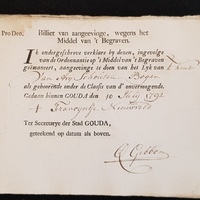 Pro Deo. Billiet van aangeevinge, wegens het
Middel van 't Begraven.
IK ondergeschreve verklare by dezen, ingevolge
van de Ordonnantie op 't Middel van 't Begraven
geëmaneert, aangeevinge te dien van het Lyk van
Van Ary Schouten
als gehoorende onder de Classis van d' onvermogende.
Gedaan binnen GOUDA den 10 July 1792
Ter Secretarye der Stad GOUDA,
geteekend op datum als boven.